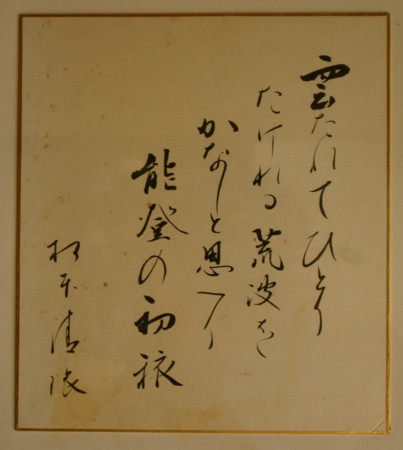 雲たれてひとり
たけれる荒波を
かなしと思へり
能登の初旅
松本清張